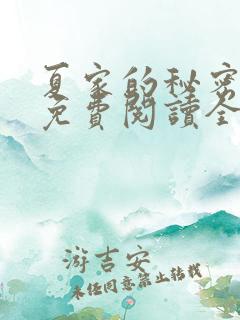 夏家的秘密
免費閱讀全
游吉安
未經同意禁止轉載